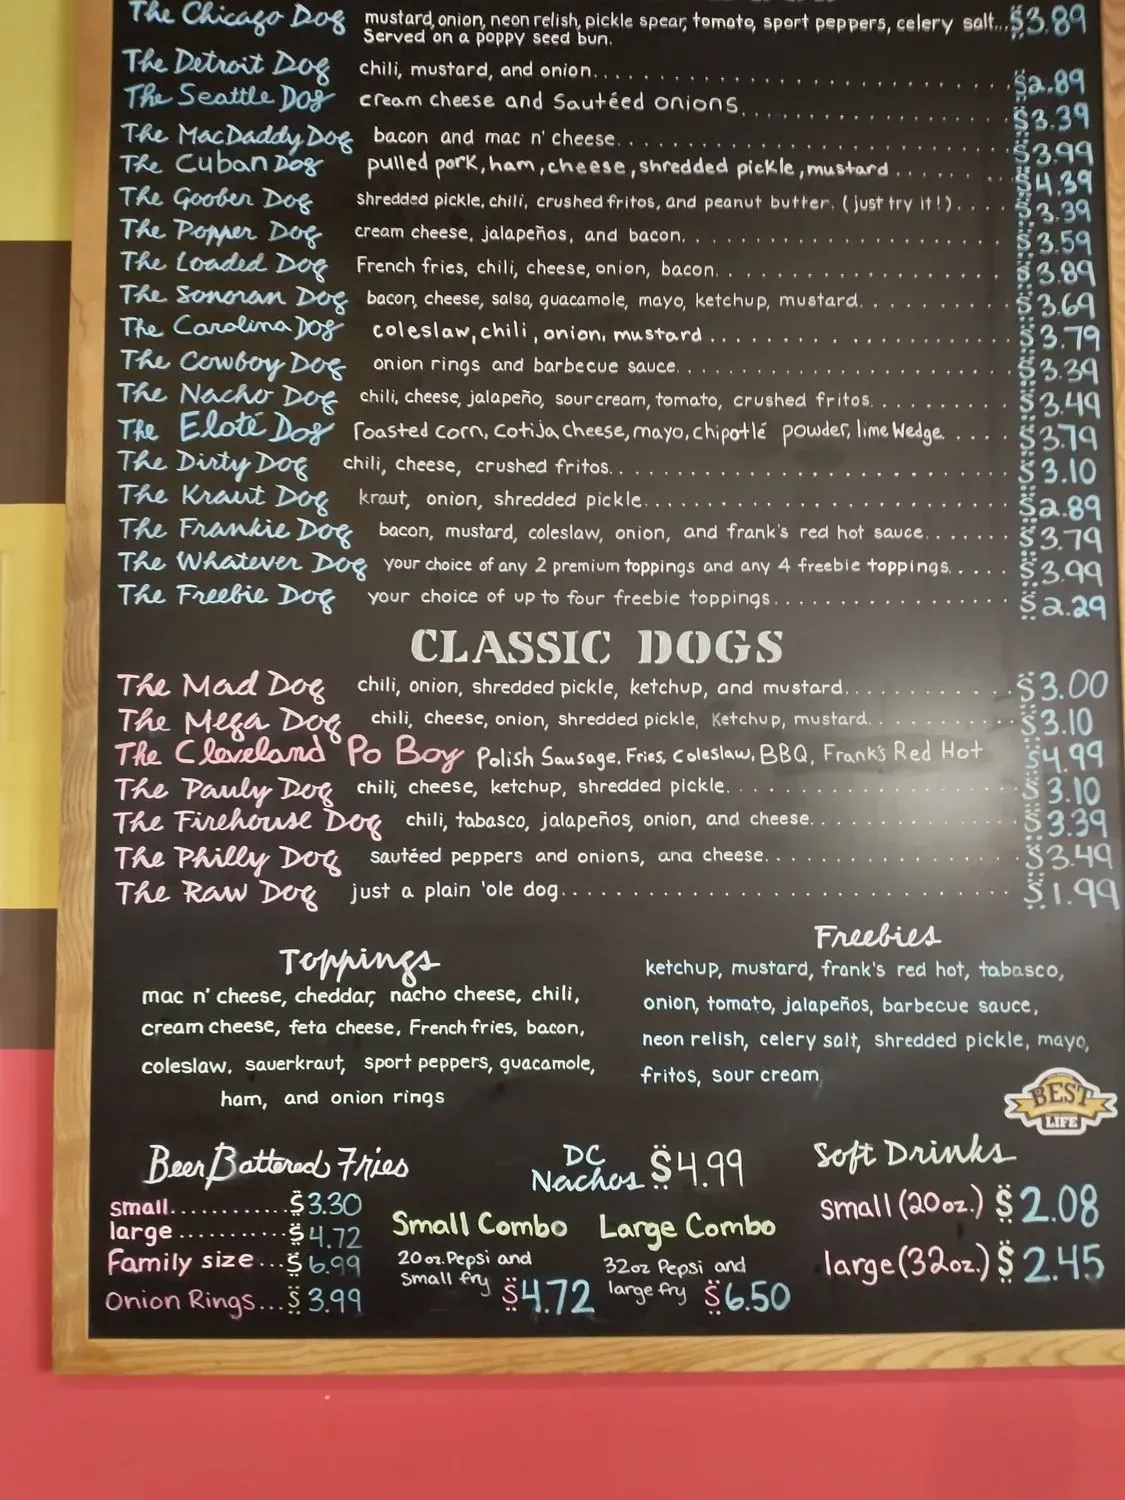 The Chicago Dog mustard, onion, neon relish, pickle spear, tomato, sport peppers, celery salt... $3.89
Served on a poppy seed bun.
The Detroit Dog chili, mustard, and onion. $2.89
The Seattle Dog cream cheese and Sautéed onions. $3.39
The MacDaddy Dog bacon and mac n' cheese. $3.99
The Cuban Dog pulled pork, ham, cheese, shredded pickle, mustard $4.39
The Goober Dog shredded pickle, chili, crushed fritos, and peanut butter. (just try it!) $3.39
The Popper Dog cream cheese, jalapeños, and bacon. $3.59
The Loaded Dog French fries, chili, cheese, onion, bacon. $3.89
The Sonoran Dog bacon, cheese, salsa, guacamole, mayo, ketchup, mustard. $3.69
The Carolina Dog coleslaw, chili, onion, mustard $3.79
The Cowboy Dog onion rings and barbecue sauce. $3.39
The Nacho Dog chili, cheese, jalapeño, sour cream, tomato, crushed fritos. $3.49
The Eloté Dog roasted corn, cotija cheese, mayo, chipotlé powder, lime Wedge. $3.79
The Dirty Dog chili, cheese, crushed fritos. $3.10
The Kraut Dog kraut, onion, shredded pickle. $2.89
The Frankie Dog bacon, mustard, coleslaw, onion, and frank's red hot sauce. $3.79
The Whatever Dog your choice of any 2 premium toppings and any 4 freebie toppings. $3.99
The Freebie Dog your choice of up to four freebie toppings. $2.29
CLASSIC DOGS
The Mad Dog chili, onion, shredded pickle, ketchup, and mustard. $3.00
The Mega Dog chili, cheese, onion, shredded pickle, Ketchup, mustard. $3.10
The Cleveland Po Boy Polish Sausage, Fries, coleslaw, BBQ, Frank's Red Hot $4.99
The Pauly Dog chili, cheese, ketchup, shredded pickle. $3.10
The Firehouse Dog chili, tabasco, jalapeños, onion, and cheese. $3.39
The Philly Dog sautéed peppers and onions, and cheese. $3.49
The Raw Dog just a plain 'ole dog. $1.99
Toppings
mac n' cheese, cheddar, nacho cheese, chili,
cream cheese, feta cheese, French fries, bacon,
coleslaw, sauerkraut, sport peppers, guacamole,
ham, and onion rings
Freebies
ketchup, mustard, frank's red hot, tabasco,
onion, tomato, jalapeños, barbecue sauce,
neon relish, celery salt, shredded pickle, mayo,
fritos, sour cream
BEST
LIFE
Beer Battered Fries
small........... $3.30
large.......... $4.72
Family size... $6.99
Onion Rings... $3.99
DC
Nachos $4.99
Small Combo
20 oz. Pepsi and
small fry $4.72
Large Combo
32oz Pepsi and
large fry $6.50
Soft Drinks
small (20oz.) $2.08
large (32oz.) $2.45